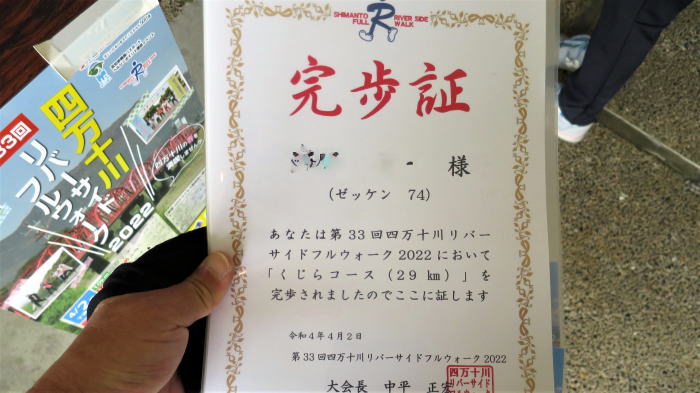 SHIMANTO RIVER SIDE
FULL WALK
完歩証
様
(ゼッケン 74)
あなたは第33回四万十川リバー
サイドフルウォーク2022において
「くじらコース(29㎞)」を
完歩されましたのでここに証します
令和4年4月2日
第33回四万十川リバーサイドフルウォーク2022
大会長 中平 正宏
四万十川
リバーサイド
33回
四万十川
リバーサイド
フルウォーク
2022